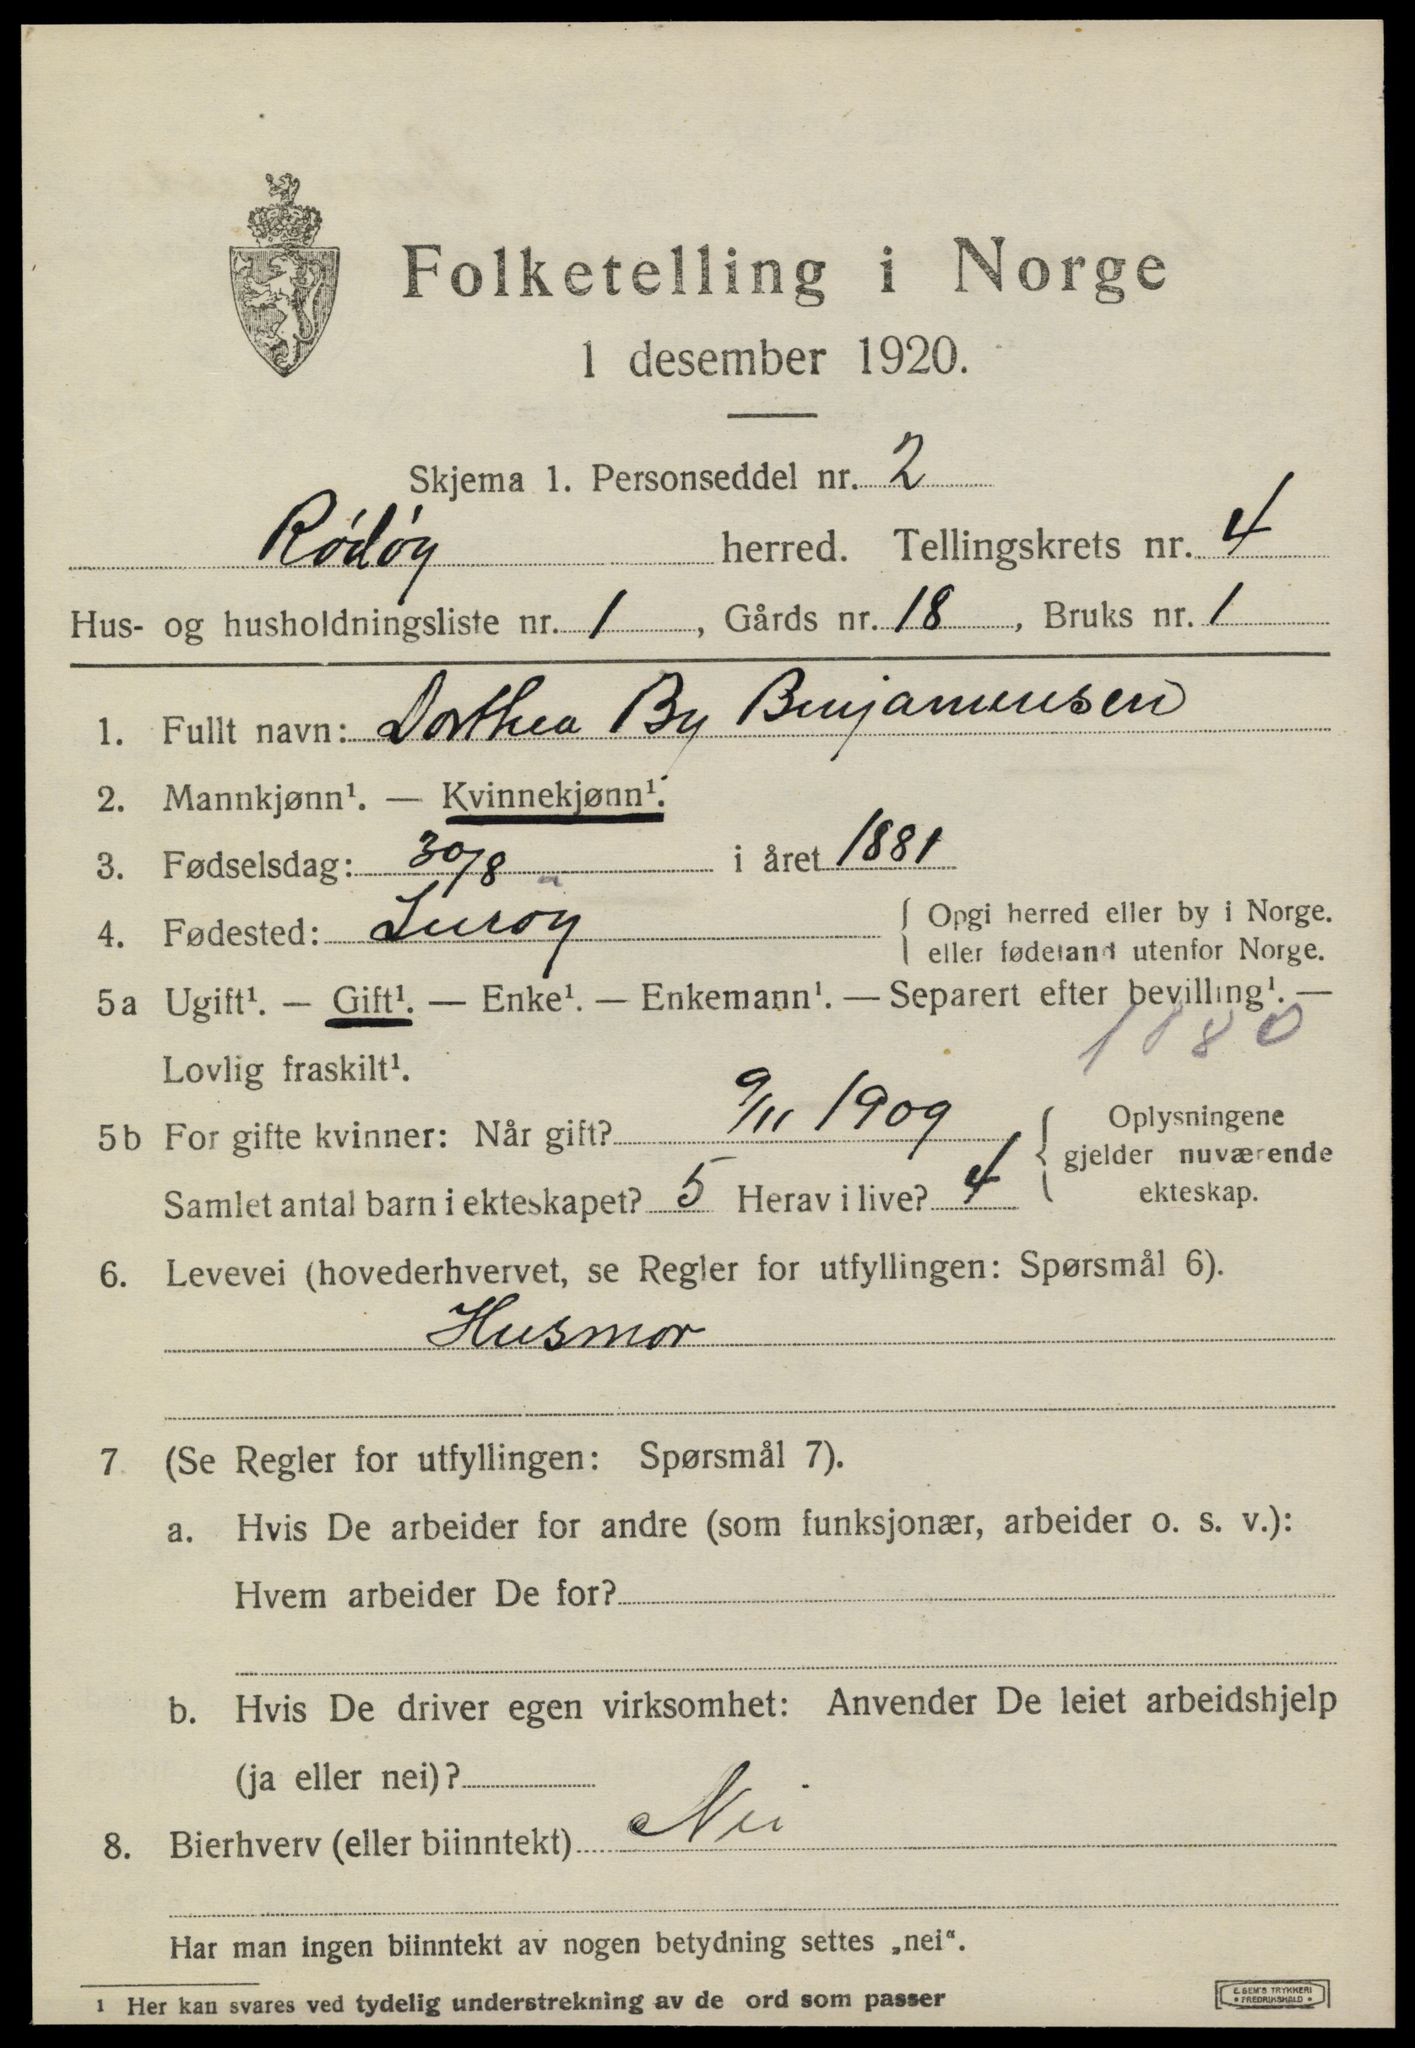 Folketelling i Norge
1 desember 1920.
Skjema 1. Personseddel nr. 2
Rødøy herred. Tellingskrets nr. 4
Hus- og husholdningsliste nr. 1, Gårds nr. 18, Bruks nr. 1
1. Fullt navn: Dorthea By Benjaminsen
2. Mannkjønn¹. — Kvinnekjønn¹.
3. Fødselsdag: 30/8 i året 1881
4. Fødested: Lurøy { Opgi herred eller by i Norge.
eller fødeland utenfor Norge.
5a Ugift¹. — Gift¹. — Enke¹. — Enkemann¹. — Separert efter bevilling¹. —
Lovlig fraskilt¹. 1180
5b For gifte kvinner: Når gift? 9/11 1909 { Oplysningene
gjelder nuværende
Samlet antal barn i ekteskapet? 5 Herav i live? 4 ekteskap.
6. Levevei (hovederhvervet, se Regler for utfyllingen: Spørsmål 6).
Husmor
7 (Se Regler for utfyllingen: Spørsmål 7).
a. Hvis De arbeider for andre (som funksjonær, arbeider o. s. v.):
Hvem arbeider De for?
b. Hvis De driver egen virksomhet: Anvender De leiet arbeidshjelp
(ja eller nei)?
8. Bierhverv (eller biinntekt) Nei
Har man ingen biinntekt av nogen betydning settes „nei“.
¹ Her kan svares ved tydelig understrekning av de ord som passer
E. SEM'S TRYKKERI
• FREDRIKSHALD •